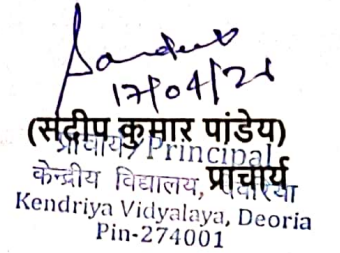 Sandeep
17/04/21
(संदीप कुमार पांडेय)
प्राचार्य / Principal
प्राचार्य
केन्द्रीय विद्यालय,
Kendriya Vidyalaya, Deoria
Pin-274001